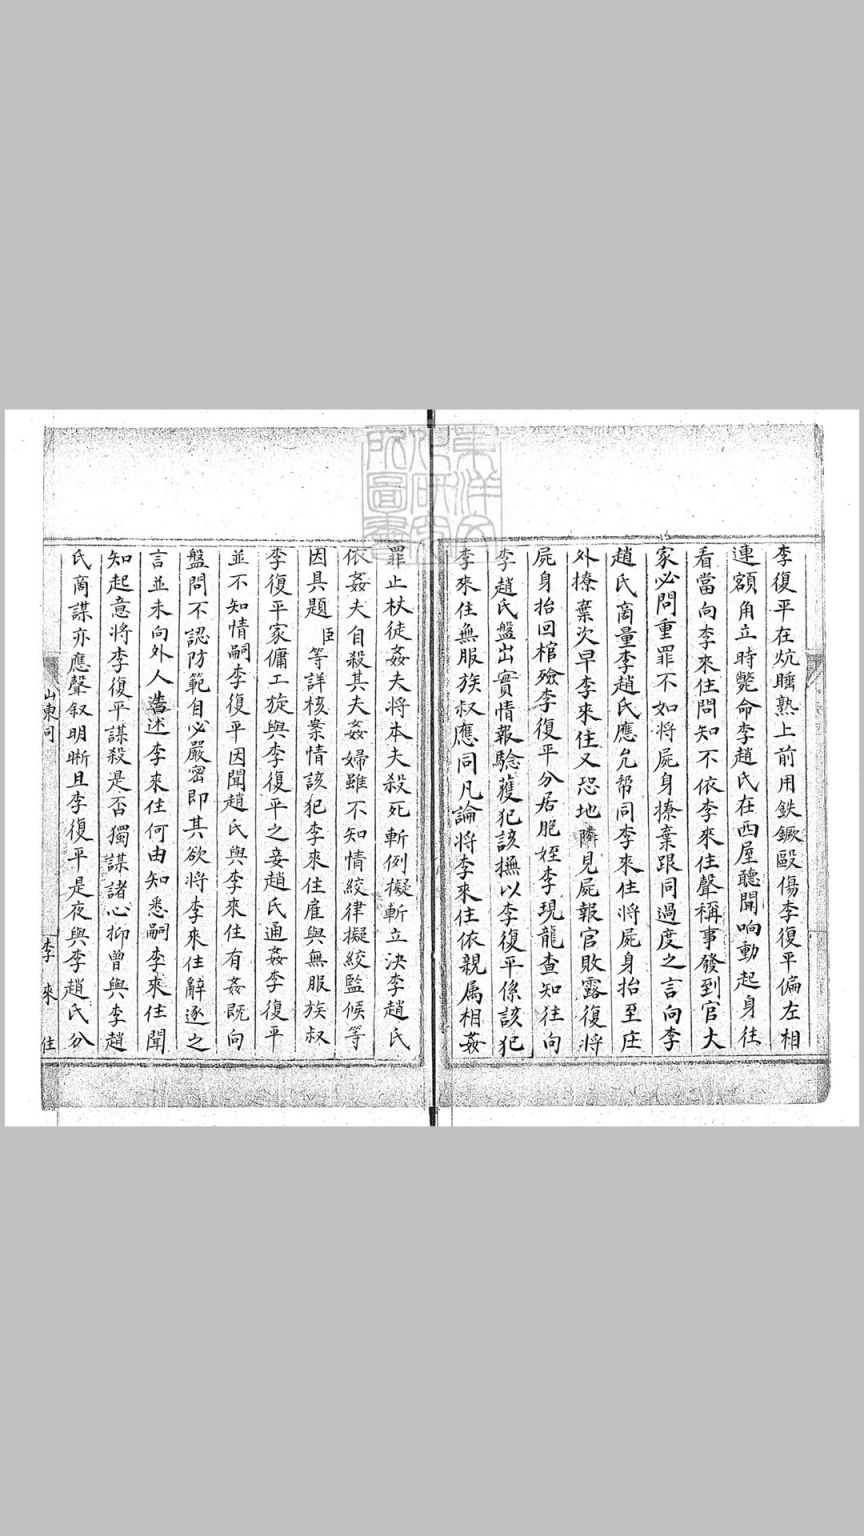 李復平在炕睡熟上前用鉄鐝毆傷李復平偏左相
連額角立時斃命李趙氏在西屋聽聞响動起身往
看當向李來住問知不依李來住聲稱事發到官大
家必問重罪不如將屍身撩棄跟同過度之言向李
趙氏商量李趙氏應允帮同李來住將屍身抬至庄
外撩棄次早李來住又恐地隣見屍報官敗露復將
屍身抬回棺殮李復平分居胞姪李現龍查知往向
李趙氏盤出實情報驗獲犯該撫以李復平係該犯
李來住無服族叔應同凡論將李來住依親属相姦
罪止杖徒姦夫將本夫殺死斬例擬斬立决李趙氏
依姦夫自殺其夫姦婦雖不知情絞律擬絞監候等
因具題臣等詳核案情該犯李來住雇與無服族叔
李復平家傭工旋與李復平之妾趙氏通姦李復平
並不知情嗣李復平因聞趙氏與李來住有姦既向
盤問不認防範自必嚴密即其欲將李來住辭逐之
言並未向外人告述李來住何由知悉嗣李來住聞
知起意將李復平謀殺是否獨謀諸心抑曾與李趙
氏商謀亦應聲叙明晰且李復平是夜與李趙氏分
山東司
李來住
東洋文
化研究
所圖書